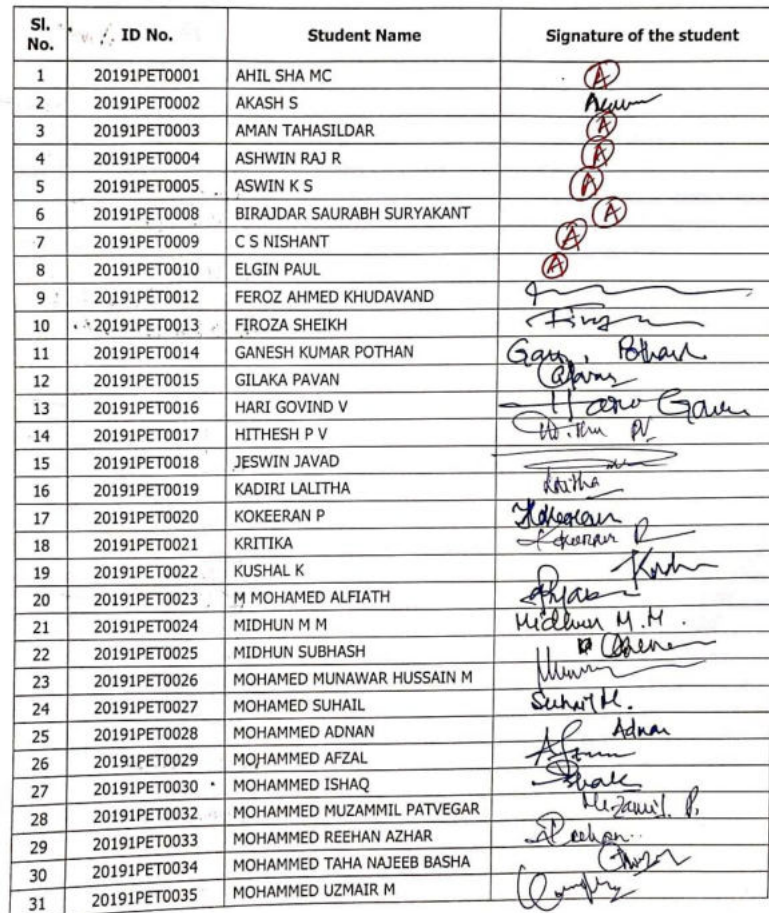 Sl. No. ID No. Student Name Signature of the student
1 20191PET0001 AHIL SHA MC A
2 20191PET0002 AKASH S
3 20191PET0003 AMAN TAHASILDAR A
4 20191PET0004 ASHWIN RAJ R A
5 20191PET0005 ASWIN K S A
6 20191PET0008 BIRAJDAR SAURABH SURYAKANT A
7 20191PET0009 C S NISHANT A
8 20191PET0010 ELGIN PAUL A
9 20191PET0012 FEROZ AHMED KHUDAVAND
10 20191PET0013 FIROZA SHEIKH
11 20191PET0014 GANESH KUMAR POTHAN
12 20191PET0015 GILAKA PAVAN
13 20191PET0016 HARI GOVIND V
14 20191PET0017 HITHESH P V
15 20191PET0018 JESWIN JAVAD
16 20191PET0019 KADIRI LALITHA Lalitha
17 20191PET0020 KOKEERAN P Kokeeran
18 20191PET0021 KRITIKA
19 20191PET0022 KUSHAL K
20 20191PET0023 M MOHAMED ALFIATH
21 20191PET0024 MIDHUN M M Midhun M.M.
22 20191PET0025 MIDHUN SUBHASH
23 20191PET0026 MOHAMED MUNAWAR HUSSAIN M
24 20191PET0027 MOHAMED SUHAIL Suhail M.
25 20191PET0028 MOHAMMED ADNAN Adnan
26 20191PET0029 MOHAMMED AFZAL
27 20191PET0030 MOHAMMED ISHAQ
28 20191PET0032 MOHAMMED MUZAMMIL PATVEGAR
29 20191PET0033 MOHAMMED REEHAN AZHAR Reehan
30 20191PET0034 MOHAMMED TAHA NAJEEB BASHA
31 20191PET0035 MOHAMMED UZMAIR M